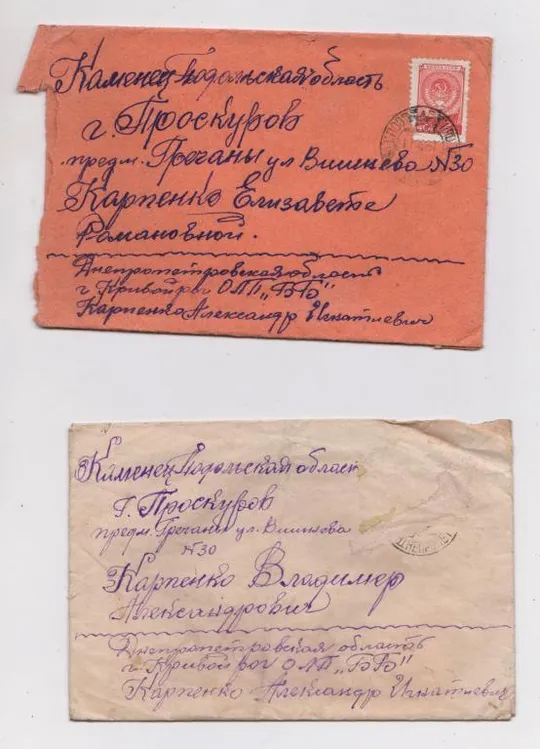 Каменец Подольская область
г. Проскуров
предм. Гречаны ул Вишнева N30
Карпенко Елизавете
Романовной.
Днепропетровская область
г Кривой рог ОЛП "ББ"
Карпенко Александр Игнатиевич
Каменец Подольская област
г. Проскуров
предм. Гречаны ул. Вишнева
N30
Карпенко Владимер
Александрович
Днепропетровская область
г. Кривой рог ОЛП "ББ"
Карпенко Александр Игнатиевич